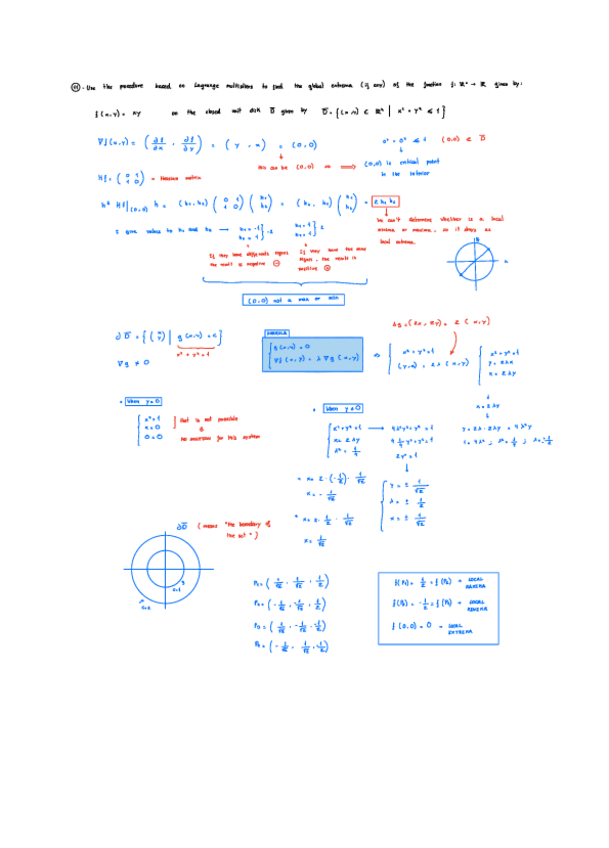 01 - Use the procedure based on Lagrange multipliers to find the global extrema (if any) of the function f: ℝ² → ℝ given by:
f(x,y) = xy on the closed unit disk D̅ given by D̅ = {(x,y) ∈ ℝ² | x² + y² ≤ 1}
∇f(x,y) = (∂f/∂x , ∂f/∂y) = (y , x) = (0,0)
0² + 0² ≤ 1 (0,0) ∈ D̅
this can be (0,0) ⟹ (0,0) is critical point in the interior
Hf = (0 1 / 1 0) = Hessian matrix
hᵗ Hf|(0,0) h = (h₁, h₂) (0 1 / 1 0) (h₁ / h₂) = (h₂, h₁) (h₁ / h₂) = 2 h₁ h₂
We can't determine whether is a local
minima or maxima, so it stays as
local extrema.
I give values to h₁ and h₂ → h₁ = -1 h₂ = 1 } -2 h₁ = 1 h₂ = 1 } 2
If they have different signs the result is negative ⊖
If they have the same signs, the result is positive ⊕
(0,0) not a max or min
∂D̅ = {(x / y) | g(x,y) = 0}
x² + y² = 1
∇g ≠ 0
{ g(x,y) = 0
∇f(x,y) = λ ∇g(x,y)
∇g = (2x, 2y) = 2(x,y)
⇒ { x² + y² = 1
(y,x) = 2λ(x,y)
{ x² + y² = 1
y = 2λx
x = 2λy
• When y=0
{ x² = 1
x = 0
0 = 0
that is not possible
No solutions for this system
• When y≠0
{ x² + y² = 1 → 4λ²y² + y² = 1
x = 2λy 4 1/4 y² + y² = 1
λ² = 1/4 2y² = 1
x = 2λy
y = 2λ · 2λy = 4λ²y
1 = 4λ² ; λ² = 1/4 ; λ = ±1/2
• x = 2 · (-1/2) · 1/√2
x = - 1/√2
• x = 2 · 1/2 · 1/√2
x = 1/√2
{ y = ± 1/√2
λ = ± 1/2
x = ± 1/√2
∂D̅ (means "the boundary of
the set")
P₁ = (1/√2 , 1/√2 , 1/2)
P₂ = (-1/√2 , -1/√2 , 1/2)
P₃ = (1/√2 , -1/√2 , -1/2)
P₄ = (-1/√2 , 1/√2 , -1/2)
f(P₁) = 1/2 = f(P₂) → LOCAL MAXIMA
f(P₃) = -1/2 = f(P₄) →
f(0,0) = 0 → LOCAL EXTREMA